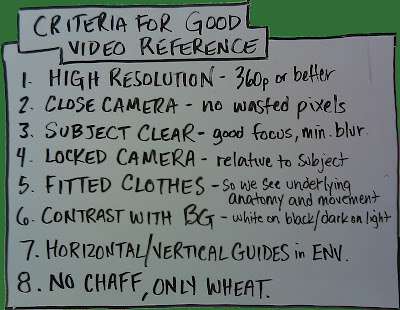 CRITERIA FOR GOOD
VIDEO REFERENCE
1. HIGH RESOLUTION - 360p or better
2. CLOSE CAMERA - no wasted pixels
3. SUBJECT CLEAR - good focus, min. blur.
4. LOCKED CAMERA - relative to subject
5. FITTED CLOTHES - so we see underlying
anatomy and movement
6. CONTRAST WITH BG - white on black/dark on light
7. HORIZONTAL/VERTICAL GUIDES in ENV.
8. NO CHAFF, ONLY WHEAT.